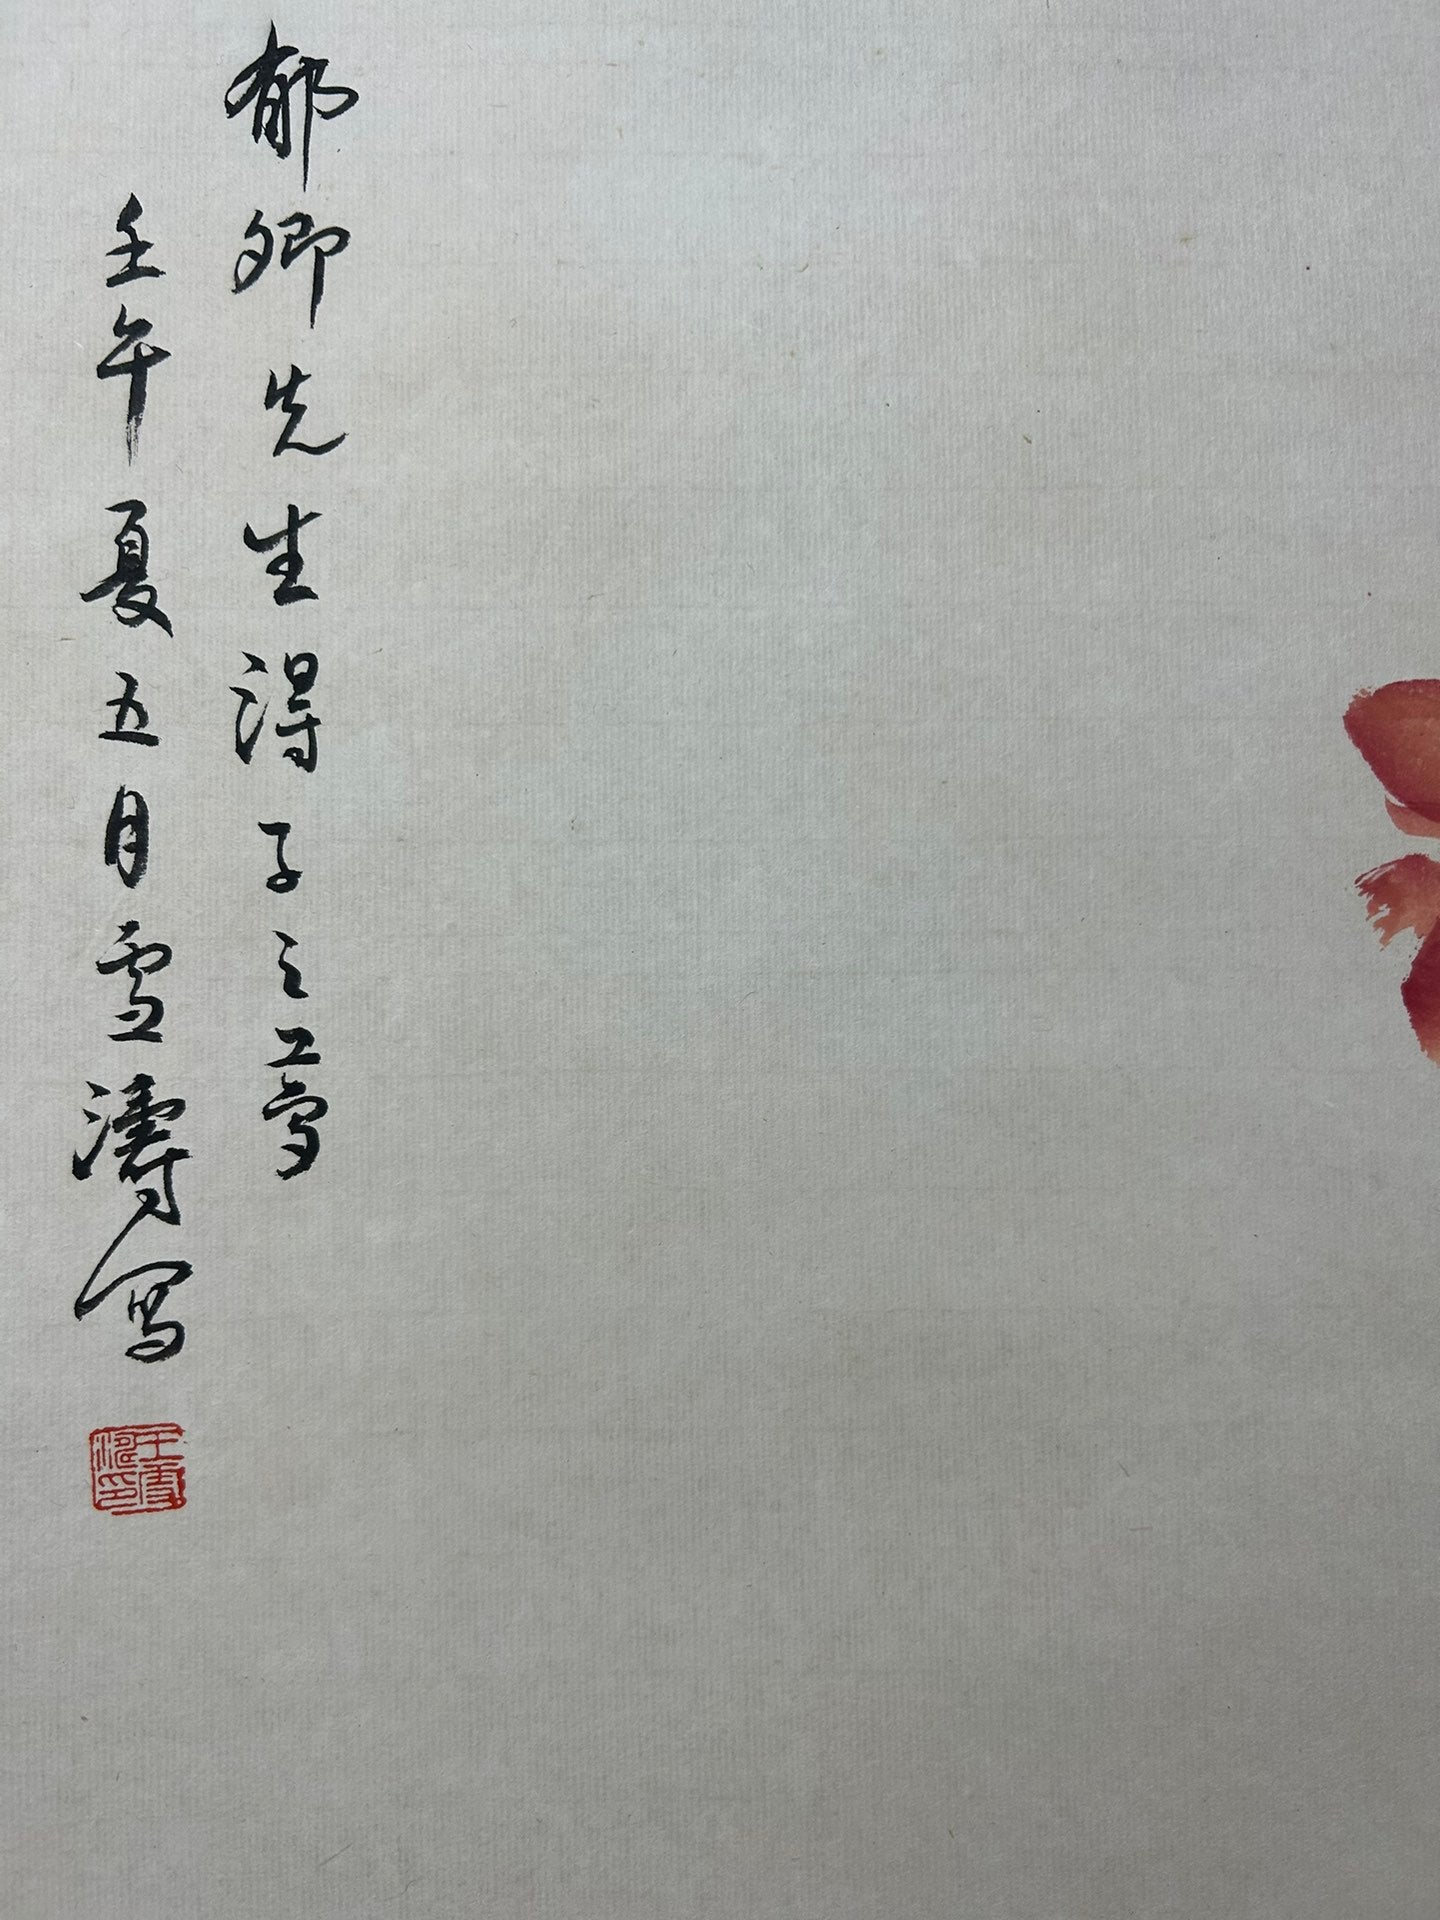 郁卿先生得子之喜
壬午夏五月雪濤寫
王雪濤印